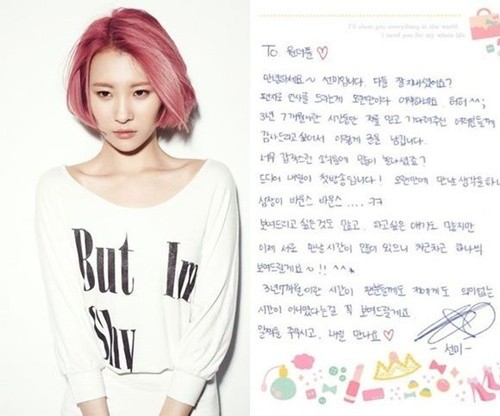 But Im
Shy
I'll show you everything in the world.
i need you for my whole life.
To 원더풀
안녕하세요~ 선미입니다. 다들 잘 지내셨어요?
편지로 인사를 드리는게 오랜만이라 어색하네요. 허허 ^^;
3년 7개월이란 시간동안 저를 믿고 기다려주신 여러분들께
감사드리고 싶어서 이렇게 글을 남깁니다.
너무 갑작스런 소식들에 많이 놀라셨죠?
드디어 내일이 첫방송입니다! 오랜만에 만날 생각을 하니
심장이 바운스 바운스 .... ㅋㅋ
보여드리고 싶은 것도 많고, 하고싶은 얘기도 많지만
이제 서로 만날 시간이 많이 있으니 차근차근 하나씩
보여드릴게요~!! ^^
3년 7개월이란 시간이 팬분들께도 저에게도 의미없는
시간이 아니었다는걸 꼭 보여드릴게요
알러뷰 주우시고, 내일 만나요
- 선미 -